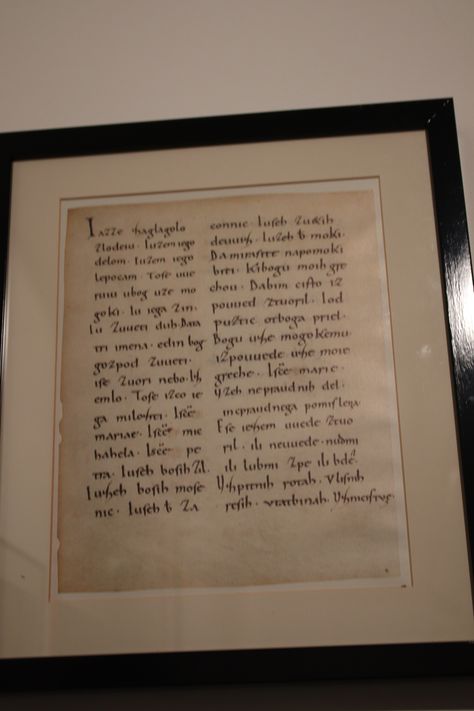 Iazze zaglagolo
zlodeiu. Iuzem iego
delom. Iuzem iego
lepocam. Tose uue
ruiu ubog uze mo
goki. Iu iega zin.
Iu zuueti duh. Data
tri imena. edin bog
gozpod zuueti.
ise zuori nebo.
emlo. Tose izco ie
ga milozti. Iscē
mariae. Iscē mic
hahela. Iscē pe
tra. Iuseh bosih zil.
Iuzseh bosih mose
nic. Iuseh ƀ za
connic. Iuseh zuetih
deuuiz. Iuzeh ƀ moki.
Da mirasite napomoki
biti. Kibogu moih gre
chou. Dabim cisto iz
pouued ztuoril. Iod
puztic otboga priel.
Bogu uze mogokemu
izpouuede uze moie
greche. Iscē marie.
Uzeh nepraudnih del.
inepraudnega pomislena
Ese iesem uuede ztuo
ril. ili neuuede. nudmi
ili lubmi zpe ili bdē.
Uzpitnih rotah. Vlisnih
resih. Vtatbinah. Vznicistve.